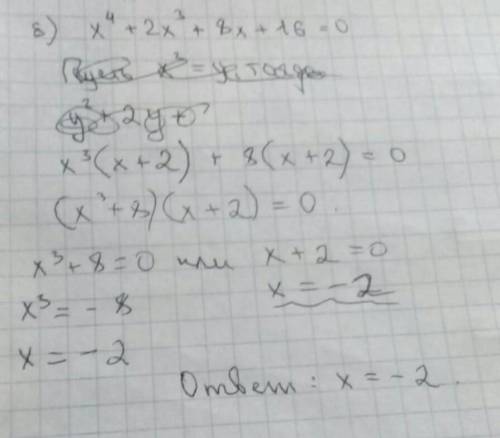 б) x⁴ + 2x³ + 8x + 16 = 0
Пусть x³ = y, тогда
y² + 2y +
x³(x + 2) + 8(x + 2) = 0
(x³ + 8)(x + 2) = 0.
x³ + 8 = 0 или x + 2 = 0
x³ = - 8 x = - 2
x = - 2
Ответ: x = - 2.